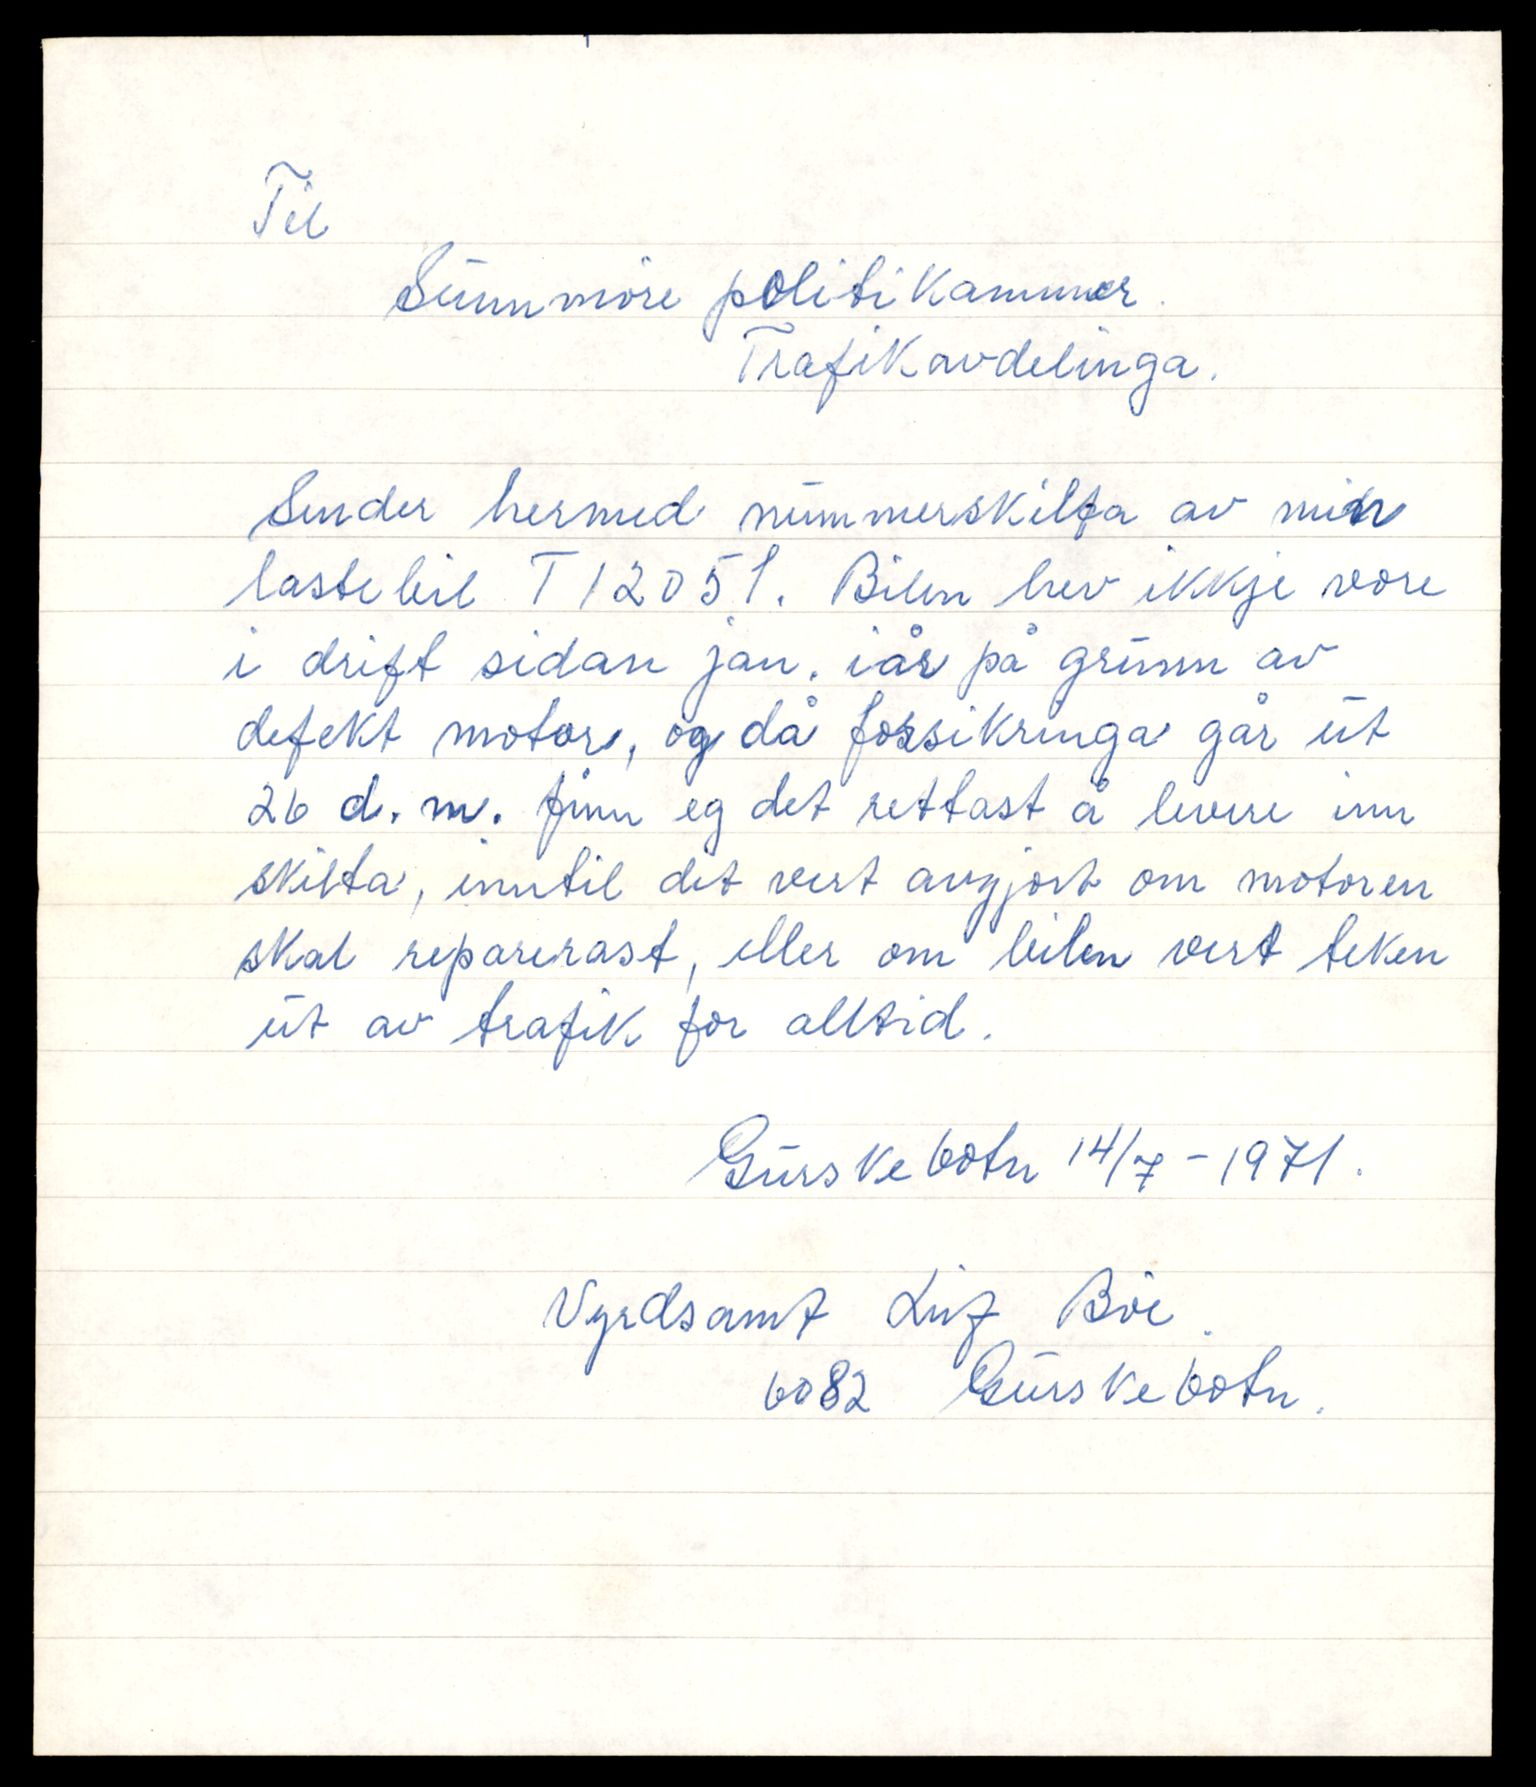 Til
Sunnmöre politikammer.
Trafikavdelinga.
Sender hermed nummerskilta av min
lastebil T 12051. Bilen hev ikkje vore
i drift sidan jan. iår på grunn av
defekt motor, og då forsikringa går ut
26 d. m. finn eg det rettast å levere inn
skilta, inntil det vert avgjort om motoren
skal reparerast, eller om bilen vert teken
ut av trafik for alltid.
Gurskebotn 14/7 - 1971.
Vyrdsamt Leif Böe.
6082 Gurskebotn.